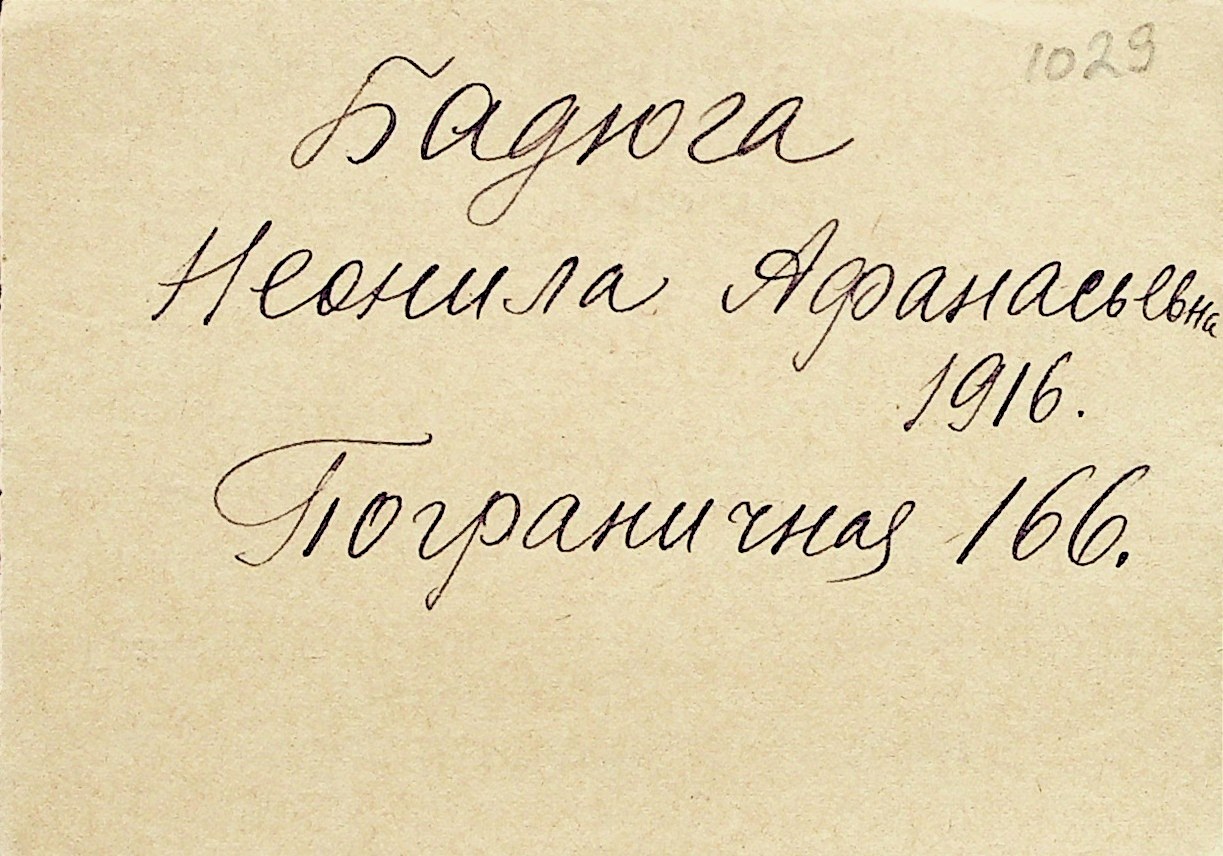 1029
Бадюга
Неонила Афанасьевна
1916.
Пограничная 166.